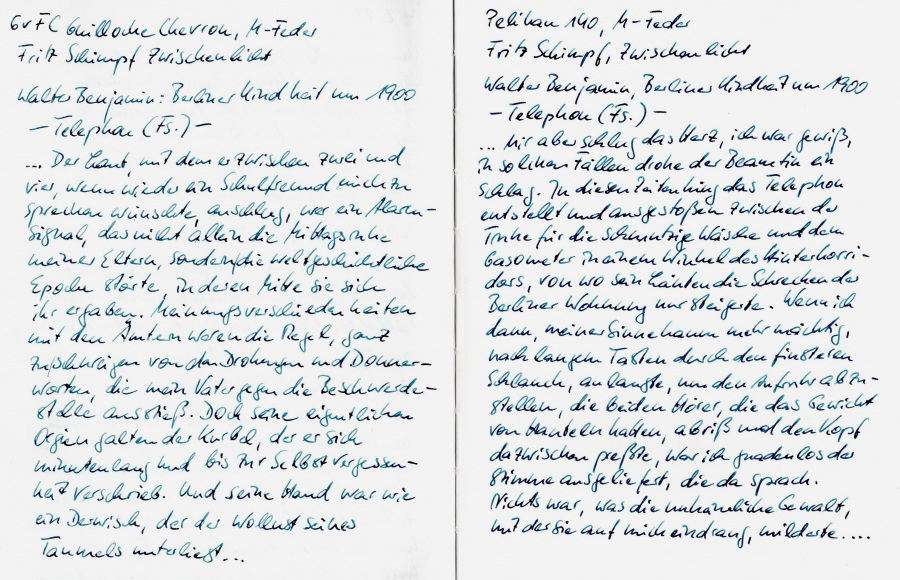 GvFC Guilloche Chevron, M-Feder
Fritz Schimpf Zwischenlicht
Walter Benjamin: Berliner Kindheit um 1900
— Telephon (Fs.) —
... Der Laut, mit dem er zwischen zwei und
vier, wenn wieder ein Schulfreund mich zu
sprechen wünschte, anschlug, war ein Alarm-
signal, das nicht allein die Mittagsruhe
meiner Eltern, sondern die weltgeschichtliche
Epoche störte, in deren Mitte sie sich
ihr ergaben. Meinungsverschiedenheiten
mit den Ämtern waren die Regel, ganz
zu schweigen von den Drohungen und Donner-
worten, die mein Vater gegen die Beschwerde-
stelle ausstieß. Doch seine eigentlichen
Orgien galten der Kurbel, der er sich
minutenlang und bis zur Selbstvergessen-
heit verschrieb. Und seine Hand war wie
ein Derwisch, der der Wollust seines
Taumels unterliegt...
Pelikan 140, M-Feder
Fritz Schimpf, Zwischenlicht
Walter Benjamin, Berliner Kindheit um 1900
— Telephon (Fs.) —
... Mir aber schlug das Herz, ich war gewiß,
in solchen Fällen drohe der Beamtin ein
Schlag. In diesen Zeiten hing das Telephon
entstellt und ausgestoßen zwischen der
Truhe für die schmutzige Wäsche und dem
Gasometer in einem Winkel des Hinterkorri-
dors, von wo sein Läuten die Schrecken der
Berliner Wohnung nur steigerte. Wenn ich
dann, meiner Sinne kaum mehr mächtig,
nach langem Tasten durch den finsteren
Schlauch, anlangte, um den Aufruhr abzu-
stellen, die beiden Hörer, die das Gewicht
von Hanteln hatten, abriß und den Kopf
dazwischen preßte, war ich gnadenlos der
Stimme ausgeliefert, die da sprach.
Nichts war, was die unheimliche Gewalt,
mit der sie auf mich eindrang, milderte....